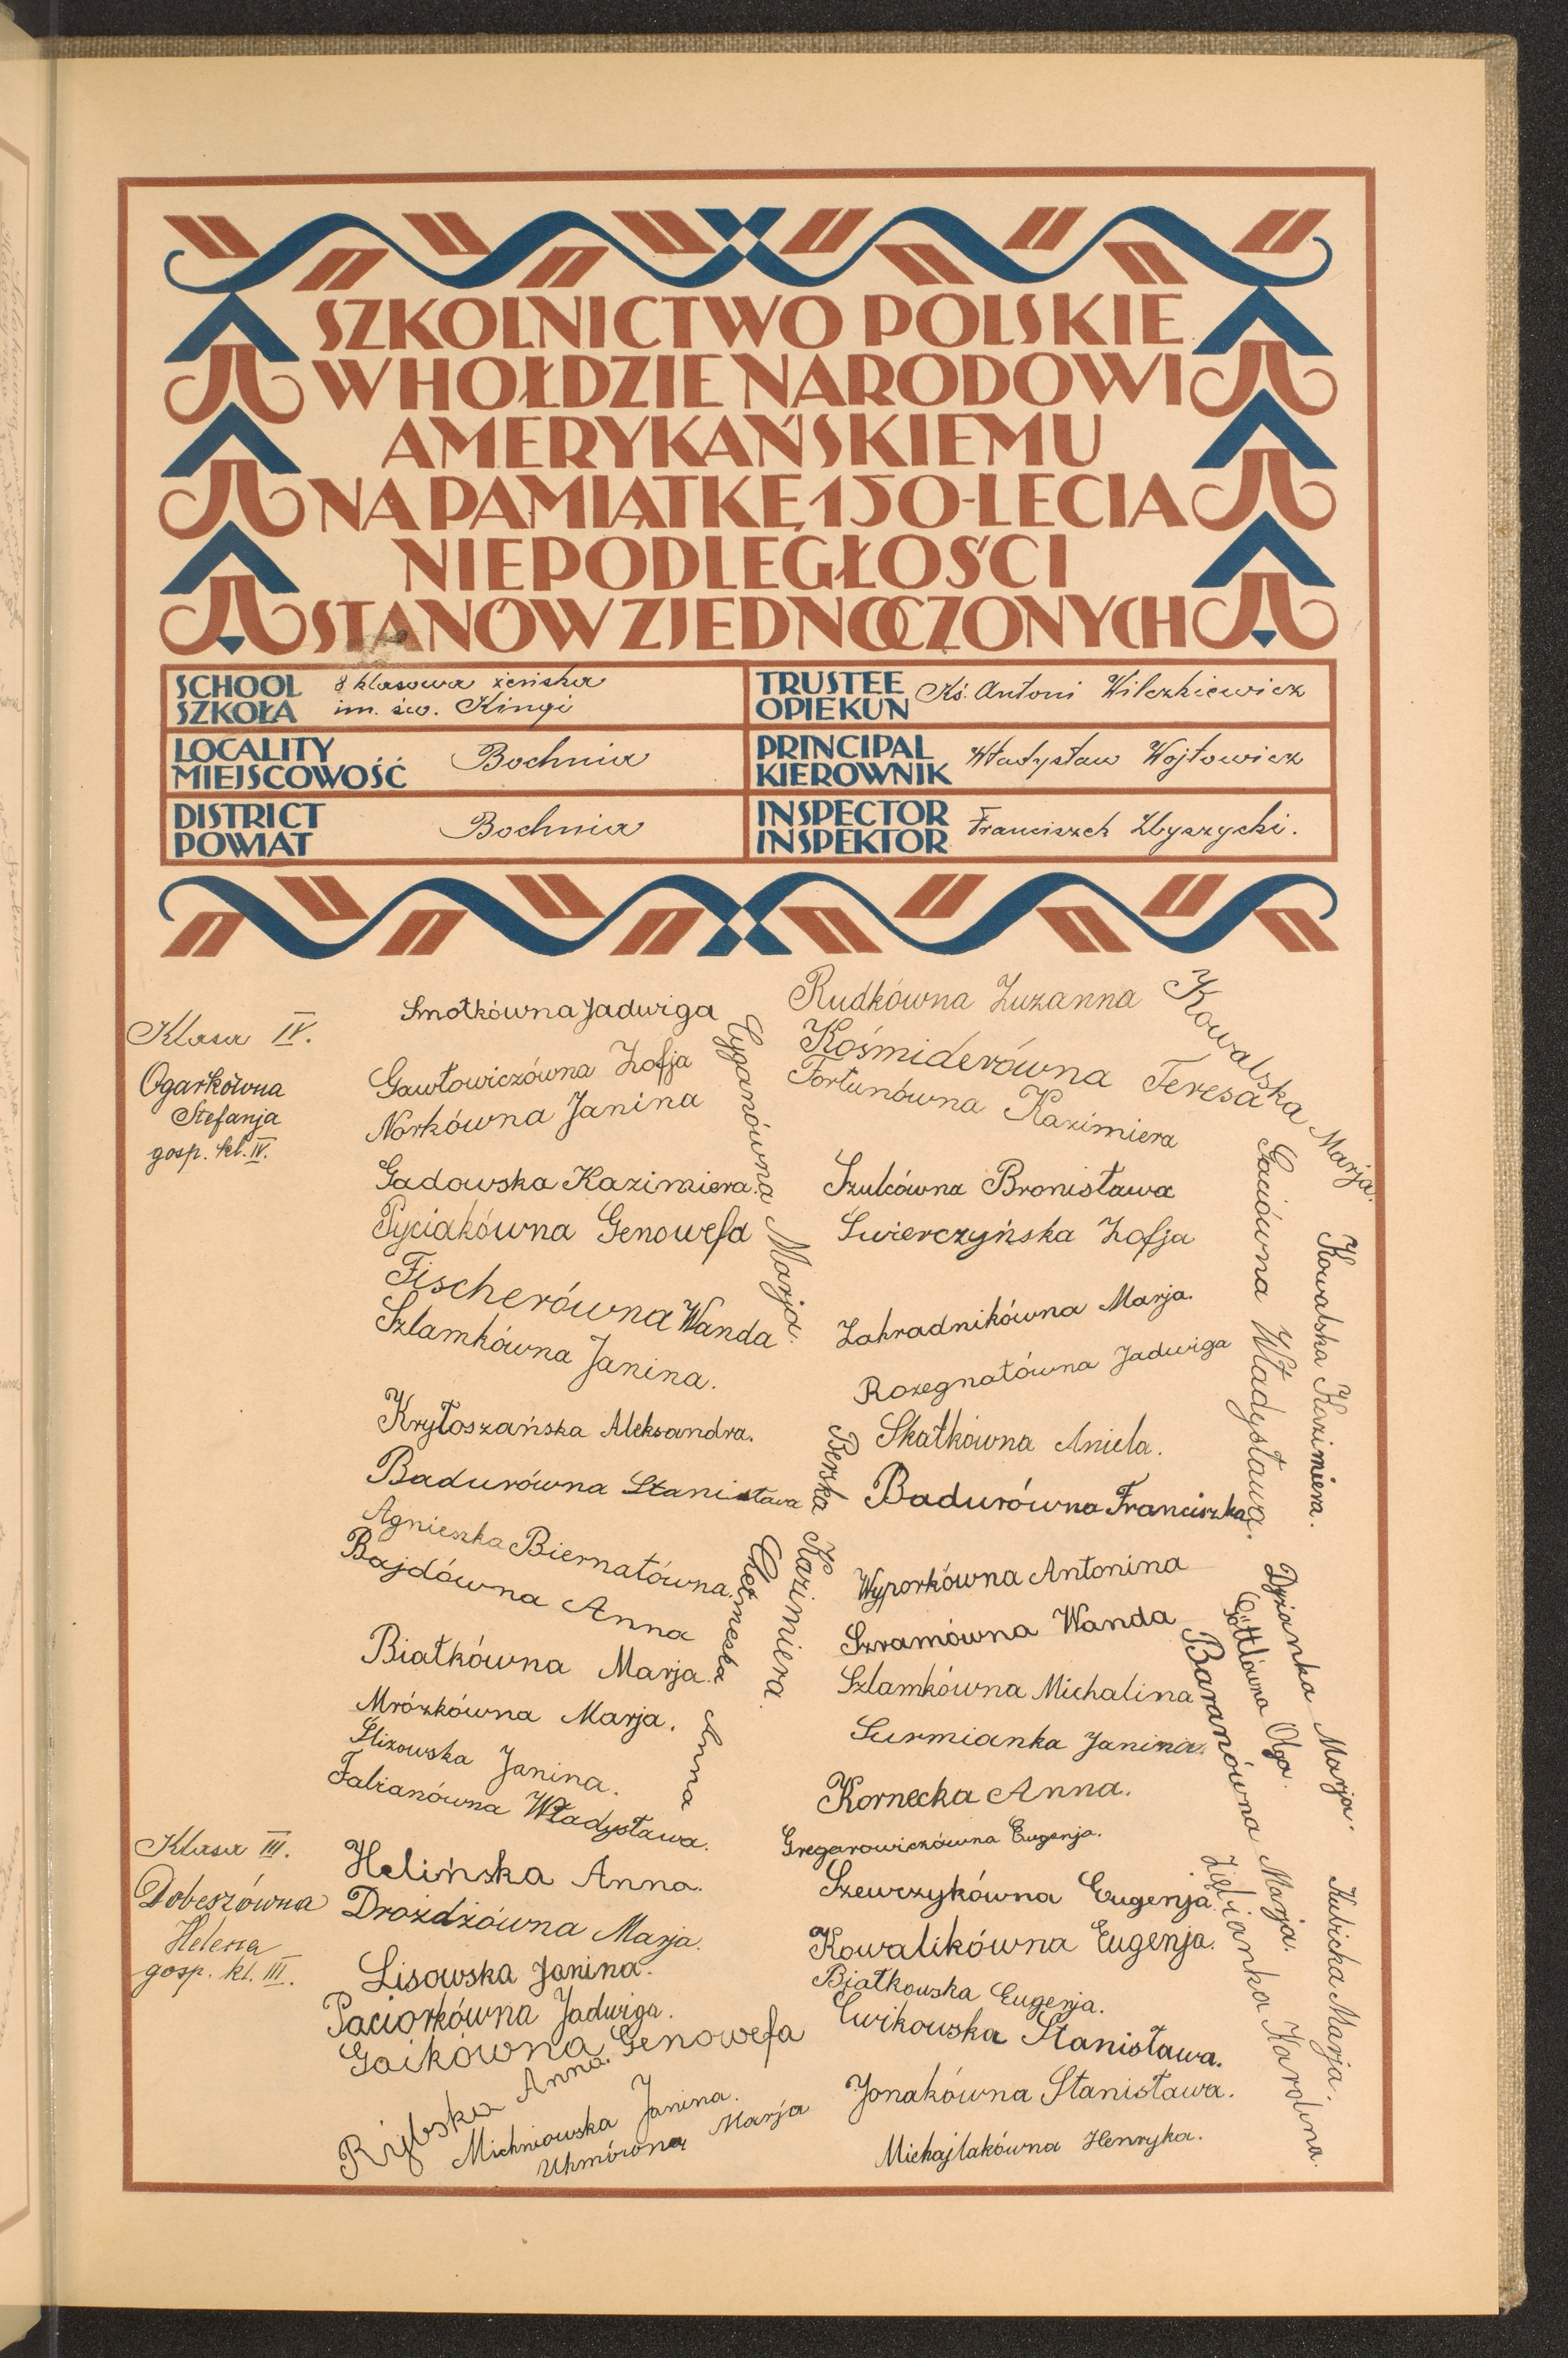 SZKOLNICTWO POLSKIE
W HOŁDZIE NARODOWI
AMERYKAŃSKIEMU
NA PAMIĄTKĘ 150-LECIA
NIEPODLEGŁOŚCI
STANÓW ZJEDNOCZONYCH
SCHOOL
SZKOŁA
8 klasowa żeńska
im. św. Kingi
TRUSTEE
OPIEKUN
Ks. Antoni Wilczkiewicz
LOCALITY
MIEJSCOWOŚĆ
Bochnia
PRINCIPAL
KIEROWNIK
Władysław Wojtowicz
DISTRICT
POWIAT
Bochnia
INSPECTOR
INSPEKTOR
Franciszek Zbyszycki.
Klasa IV.
Ogarkówna
Stefanja
gosp. kl. IV.
Smotkówna Jadwiga
Gawłowiczówna Zofja
Norkówna Janina
Gadowska Kazimiera.
Pyciakówna Genowefa
Fischerówna Wanda
Szlamkówna Janina.
Kryłoszańska Aleksandra.
Badurówna Stanisława
Agnieszka Biernatówna.
Bajdówna Anna
Białkówna Marja.
Mrózkówna Marja.
Ślizowska Janina.
Fabianówna Władysława.
Cyganówna Marja.
Berska Kazimiera.
Chełmecka Anna
Rudkówna Zuzanna
Kośmiderówna Teresa
Fortunówna Kazimiera
Szulcówna Bronisława
Świerczyńska Zofja
Zahradnikówna Marja.
Rozegnatówna Jadwiga
Skałkówna Aniela.
Badurówna Franciszka
Wyporkówna Antonina
Szramówna Wanda
Szlamkówna Michalina
Surmianka Janina.
Kornecka Anna.
Gregarowiczówna Eugenja.
Kowalska Marja.
Gaciówna Władysława.
Kowalska Kazimiera.
Dyzianka Marja.
Göttlówna Olga.
Baranówna Marja.
Klasa III.
Dobeszówna
Helena
gosp. kl. III.
Helińska Anna.
Drożdżówna Marja.
Lisowska Janina.
Paciorkówna Jadwiga.
Gaikówna Genowefa
Rybska Anna.
Michniowska Janina.
Uhmówna Marja
Szewczykówna Eugenja.
Kowalikówna Eugenja.
Białkowska Eugenja.
Ćwikowska Stanisława.
Jonakówna Stanisława.
Michajlakówna Henryka.
Zięcianka Karolina.
Kubicka Marja.